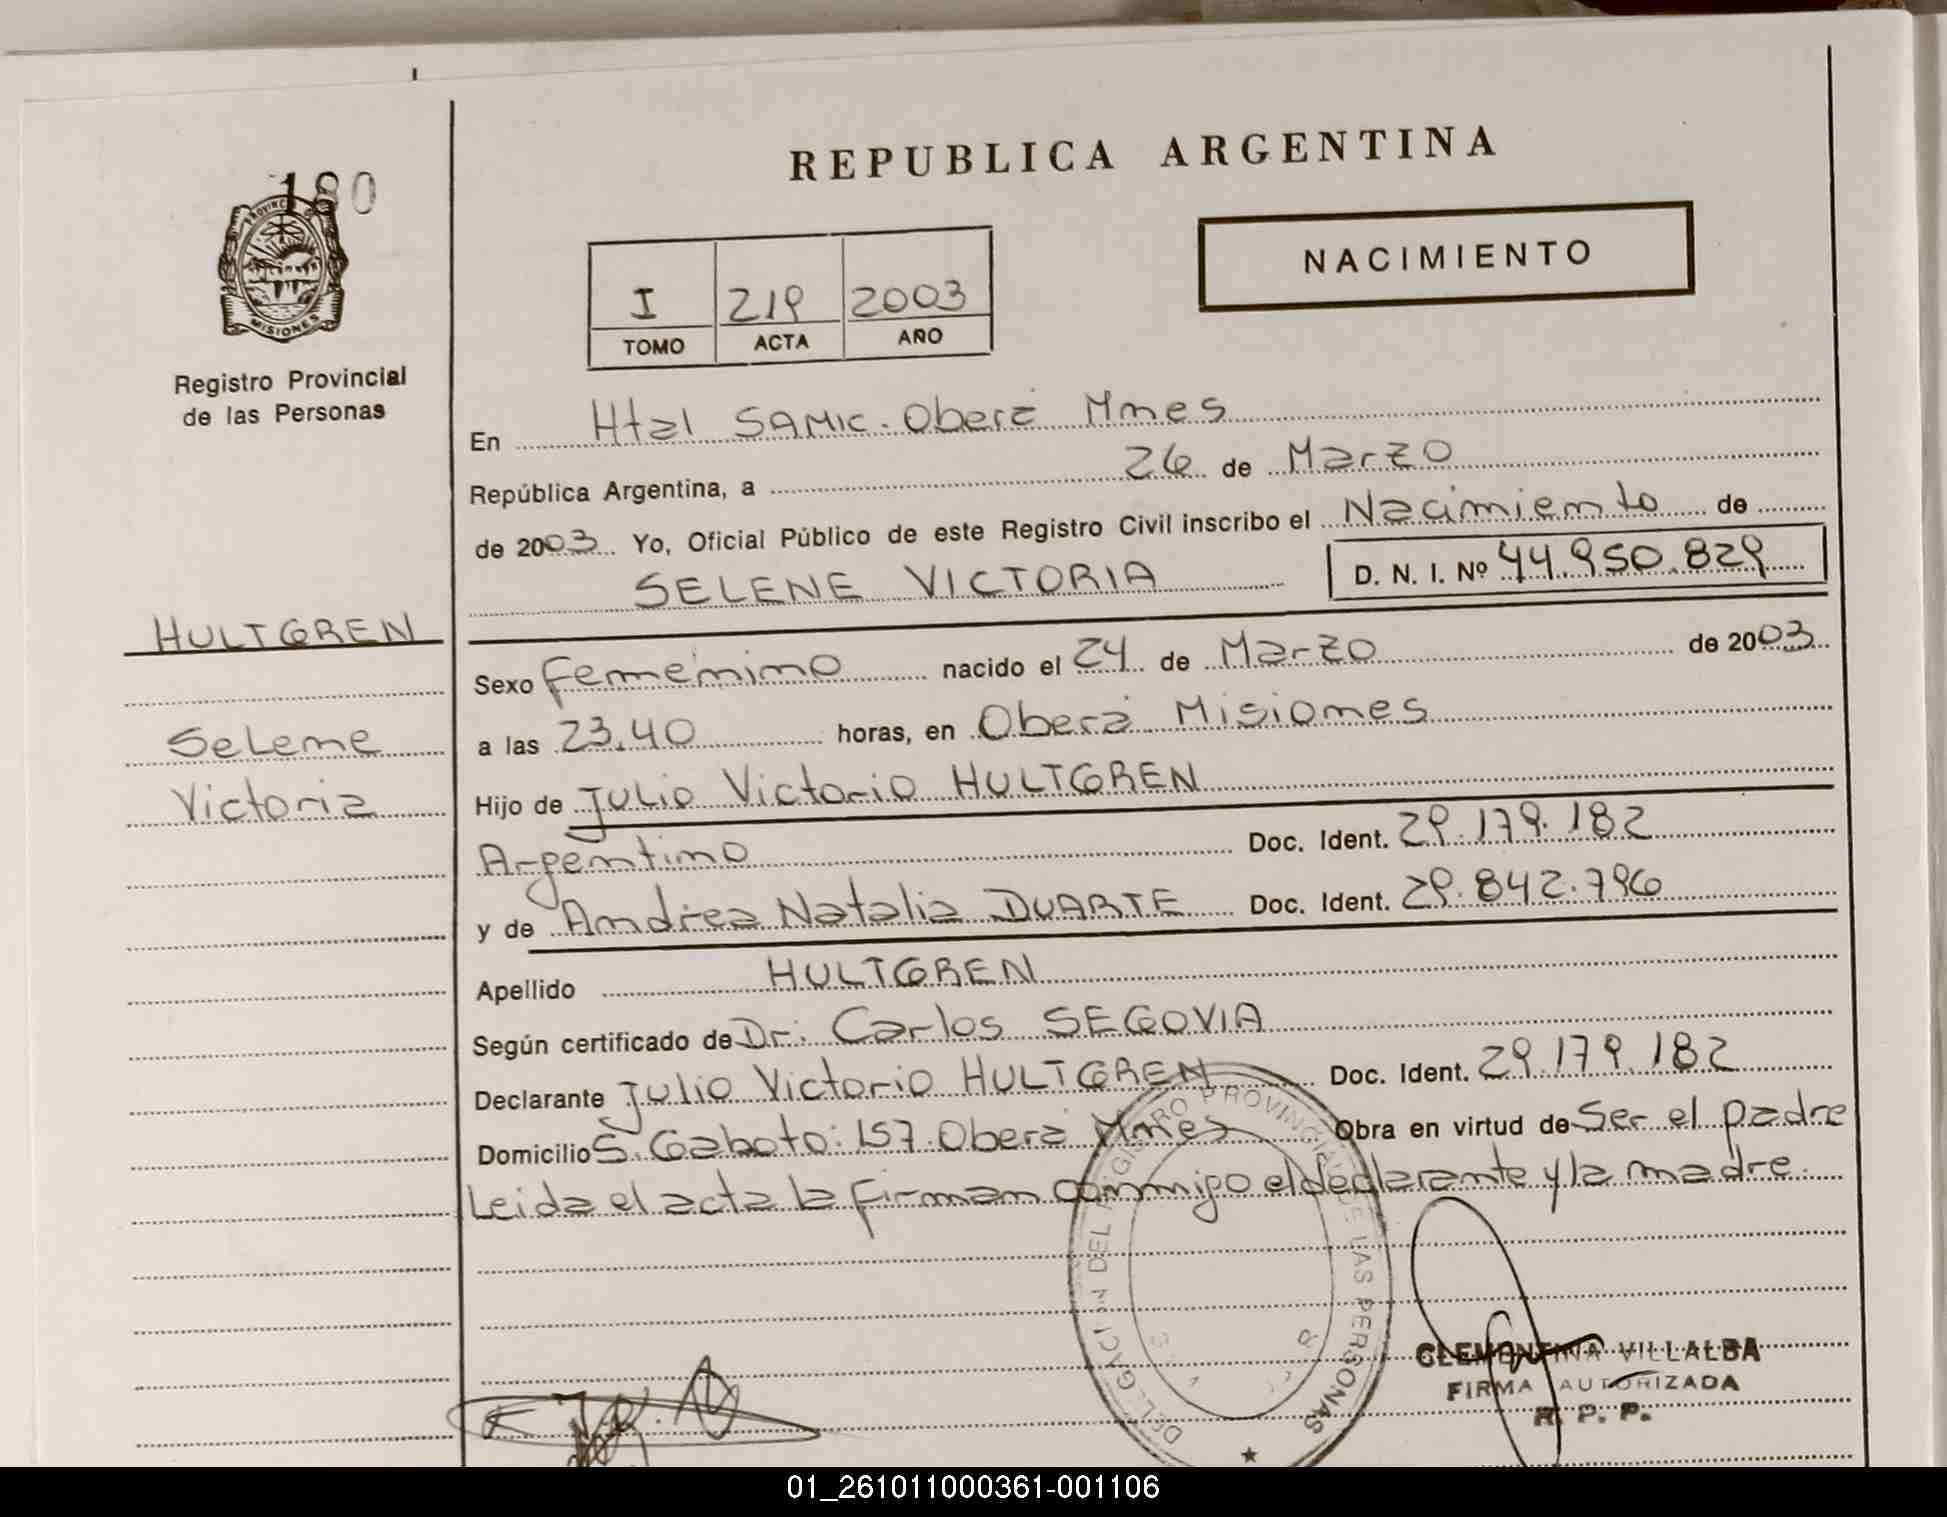 REPUBLICA ARGENTINA
180
PROVINCIA
MISIONES
Registro Provincial
de las Personas
NACIMIENTO
I 219 2003
TOMO ACTA AÑO
En Htal SAMIC. Oberá Mnes
República Argentina, a 26 de Marzo
de 2003 Yo, Oficial Público de este Registro Civil inscribo el Nacimiento de
SELENE VICTORIA D. N. I. Nº 44.950.829
HULTGREN
Selene
Victoria
Sexo Femenino nacido el 24 de Marzo de 2003
a las 23.40 horas, en Oberá Misiones
Hijo de Julio Victorio HULTGREN
Argentino Doc. Ident. 29.179.182
y de Andrea Natalia DUARTE Doc. Ident. 29.842.796
Apellido HULTGREN
Según certificado de Dr: Carlos SEGOVIA
Declarante Julio Victorio HULTGREN Doc. Ident. 29.179.182
Domicilio S. Gaboto: 157. Oberá Mnes Obra en virtud de Ser el padre
Leida el acta la firman conmigo el declarante y la madre.
REGISTRO PROVINCIAL DE LAS PERSONAS
CLEMENTINA VILLALBA
FIRMA AUTORIZADA
R. P. P.
01_261011000361-001106